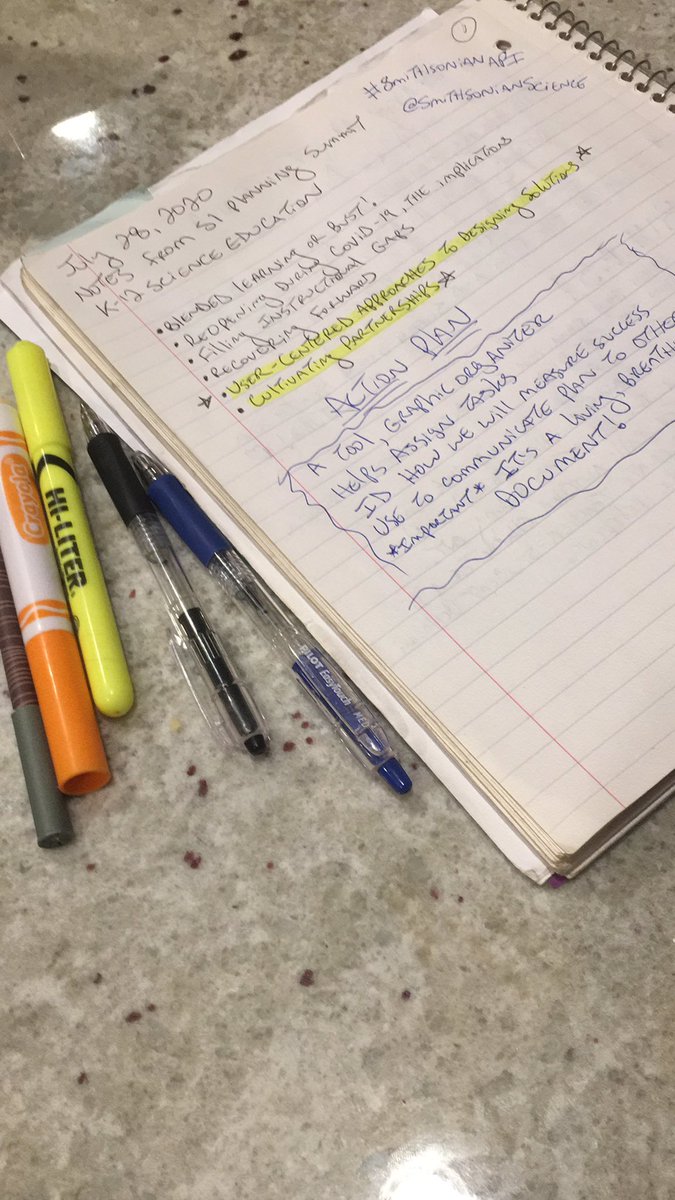 1
#SmithsonianAPI
@SmithsonianScience
July 28, 2020
Notes from SI Planning Summit
K-2 Science Education
• Blended Learning or Bust!
• Reopening During COVID-19, the implications
• Filling Instructional Gaps
• Recovering Forward
☆ • User-Centered Approaches to Designing Solutions ☆
• Cultivating Partnerships ☆
Action Plan
A tool, graphic organizer
Helps assign tasks
ID how we will measure success
Use to communicate plan to other
*Important* It's a living, breathin
Document!
Crayola
HI-LITER®
PILOT EasyTouch